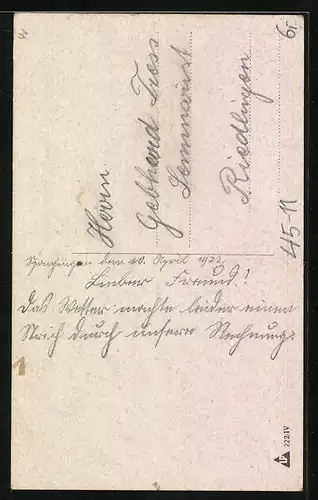 Herrn
Gebhard Tross
Riedlingen
Spaichingen den 20. April 1922.
Lieber Freund!
Das Wetter machte leider einen
Strich durch unsere Rechnung.
45-11
6.-
222/IV